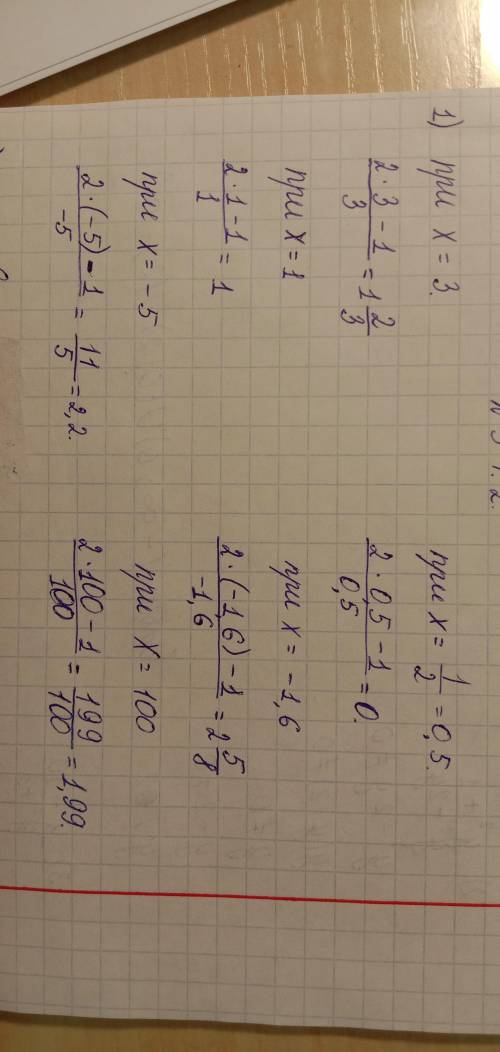 1) при x = 3.
2·3-1/3 = 1 2/3
при x = 1
2·1-1/1 = 1
при x = -5
2·(-5)-1/-5 = 11/5 = 2,2.
при x = 1/2 = 0,5.
2·0,5-1/0,5 = 0.
при x = -1,6
2·(-1,6)-1/-1,6 = 2 5/8
при x = 100
2·100-1/100 = 199/100 = 1,99.